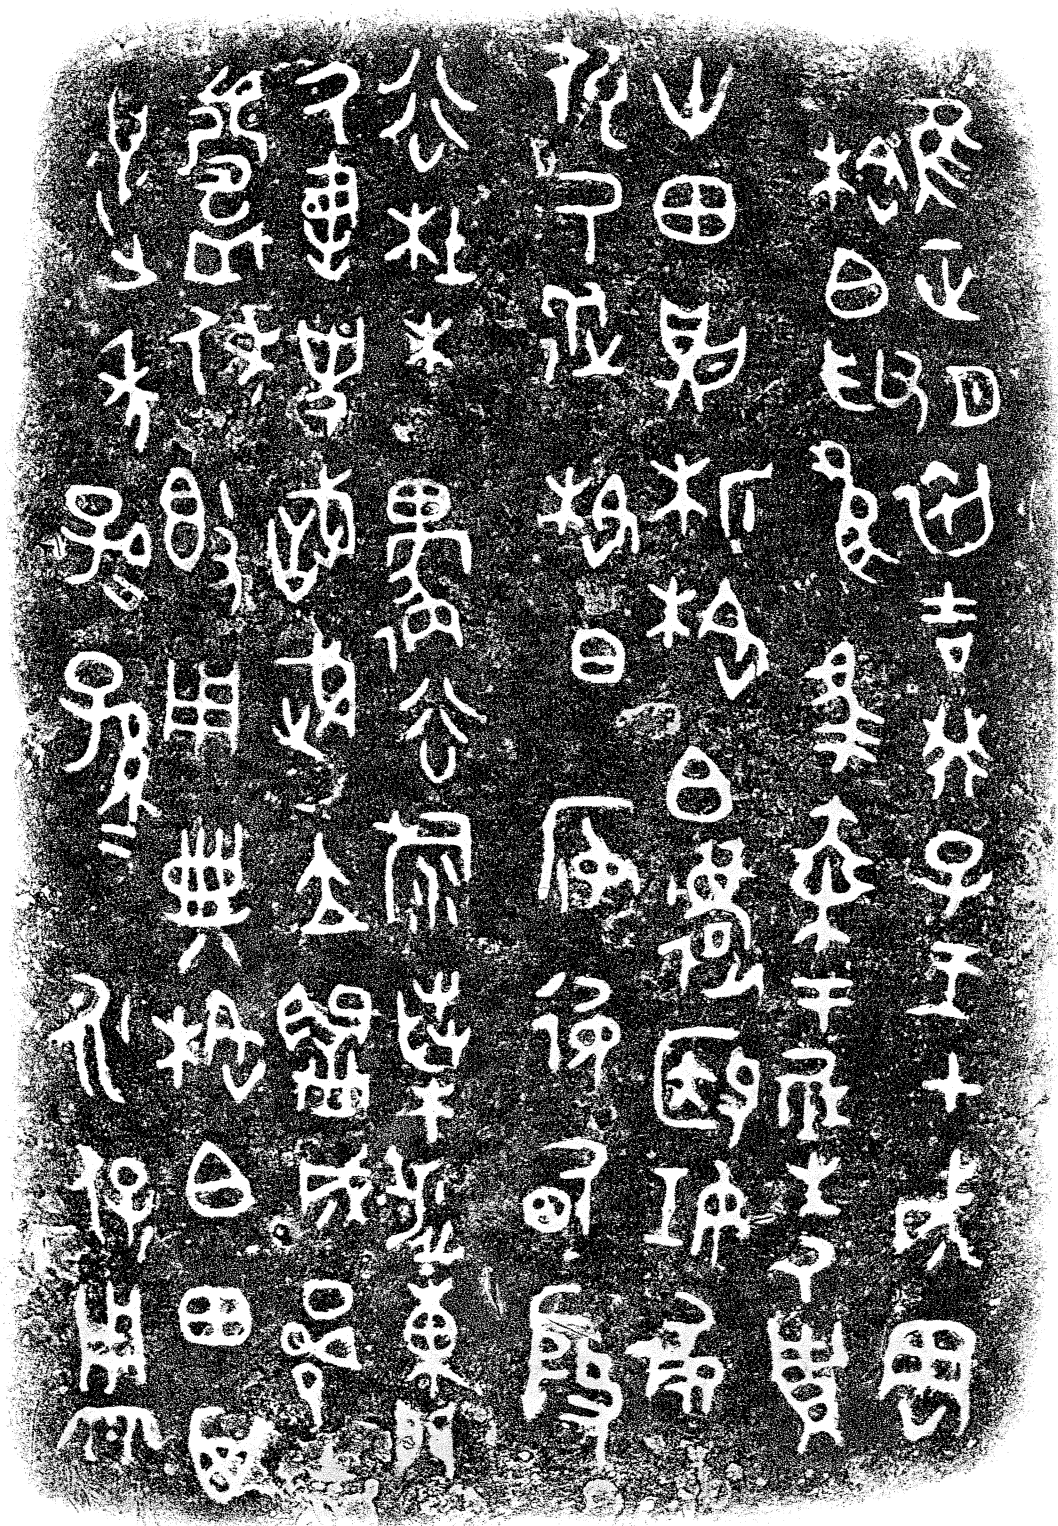 隹正月初吉癸子王才成周
格白取良馬乘于倗生厥貯
卅田則析格白履殹妊彶
仡厥從格白安彶甸殷
谷杜木邍谷旅桑涉東門
厥書史戠武立臿成壘
鑄保簋用典格白田其
邁年子＝孫＝永保用